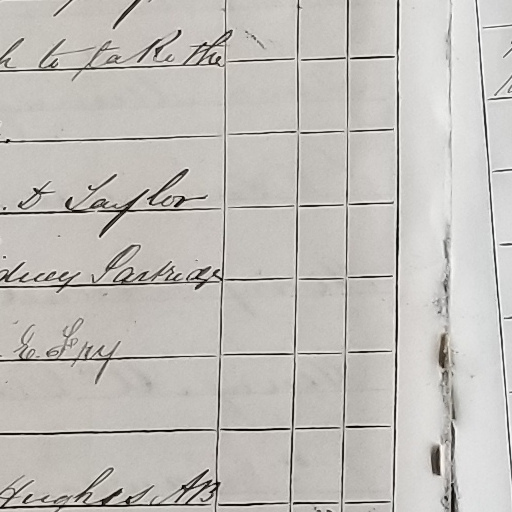 h to take the
. D Taylor
idney Partridge
. E. Fry
Hughes, AB